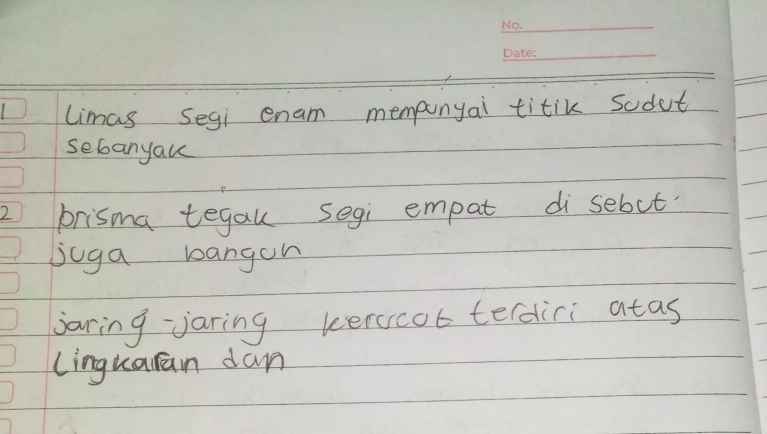 No.
Date:
1 Limas segi enam mempunyai titik sudut
sebanyak
2 prisma tegak segi empat di sebut
juga bangun
jaring-jaring kerucut terdiri atas
Lingkaran dan